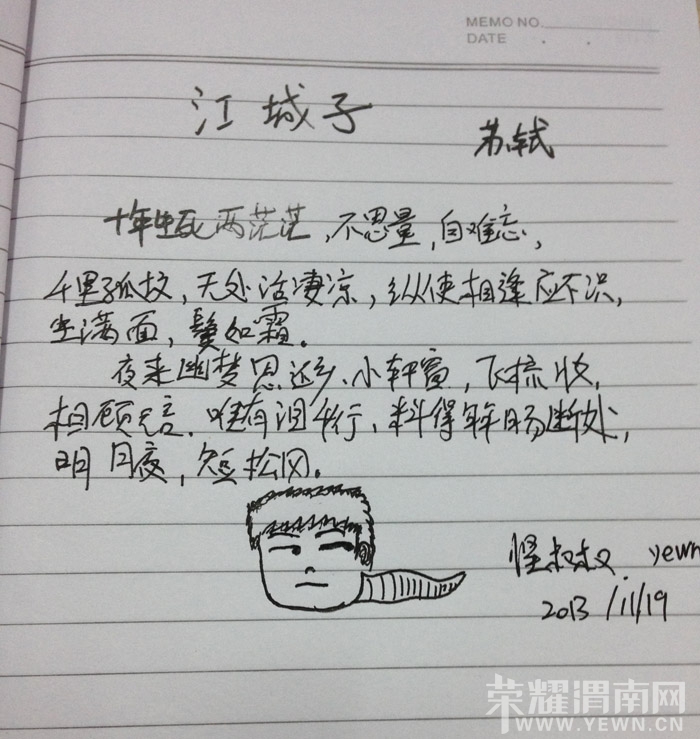 MEMO NO.
DATE . .
江城子
苏轼
十年生死两茫茫,不思量,自难忘,
千里孤坟,无处话凄凉,纵使相逢应不识,
尘满面,鬓如霜。
夜来幽梦忽还乡、小轩窗,飞梳妆,
相顾无言.唯有泪千行、料得年年肠断处,
明月夜,短松冈。
怪叔叔. yewn
2013/11/19
荣耀渭南网
WWW.YEWN.CN